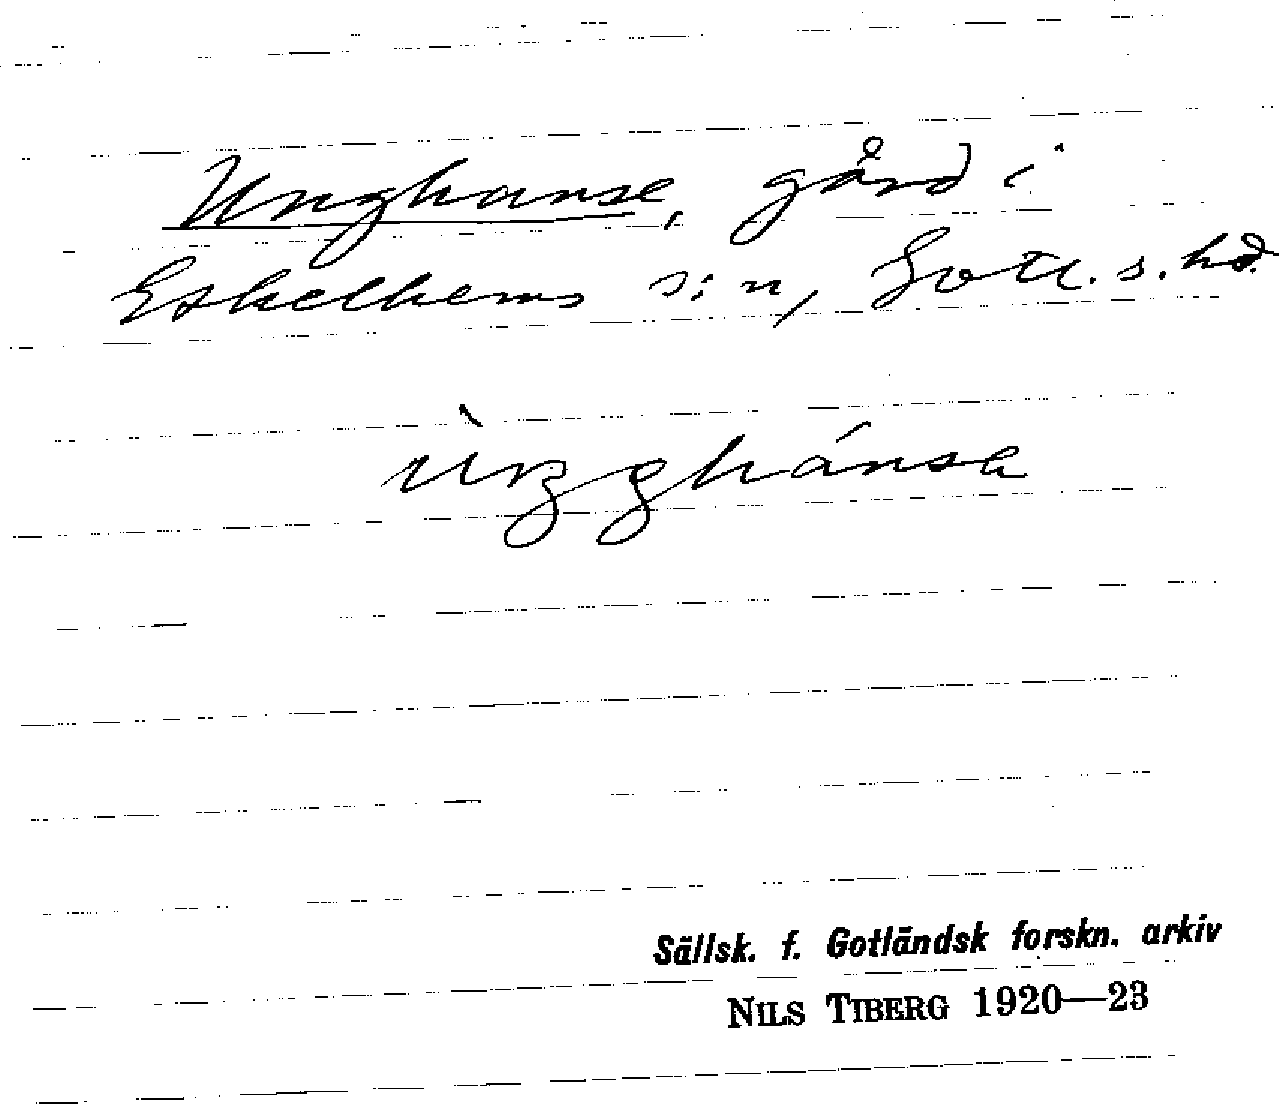 Unghanse, gård i
Eskelhems s:n, Gotl. s. hd.
ùŋghánsa
Sällsk. f. Gotländsk forskn. arkiv
NILS TIBERG 1920—23